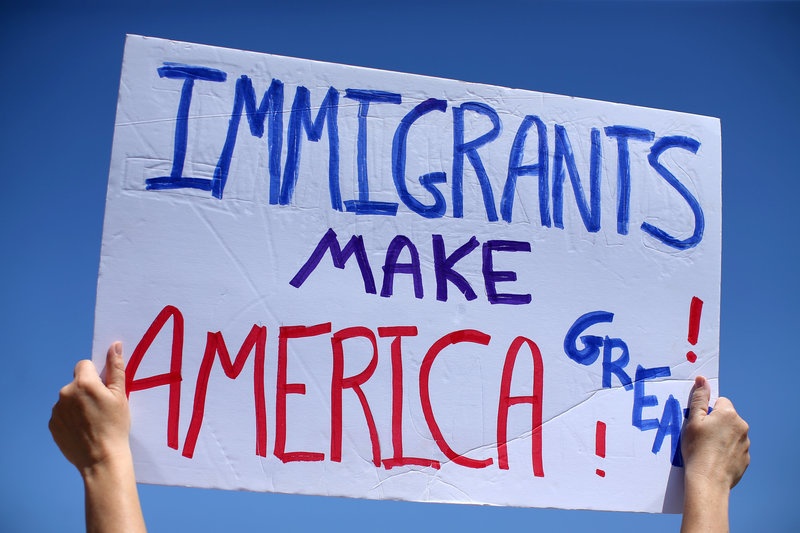 IMMIGRANTS
MAKE
AMERICA
GREAT
! !